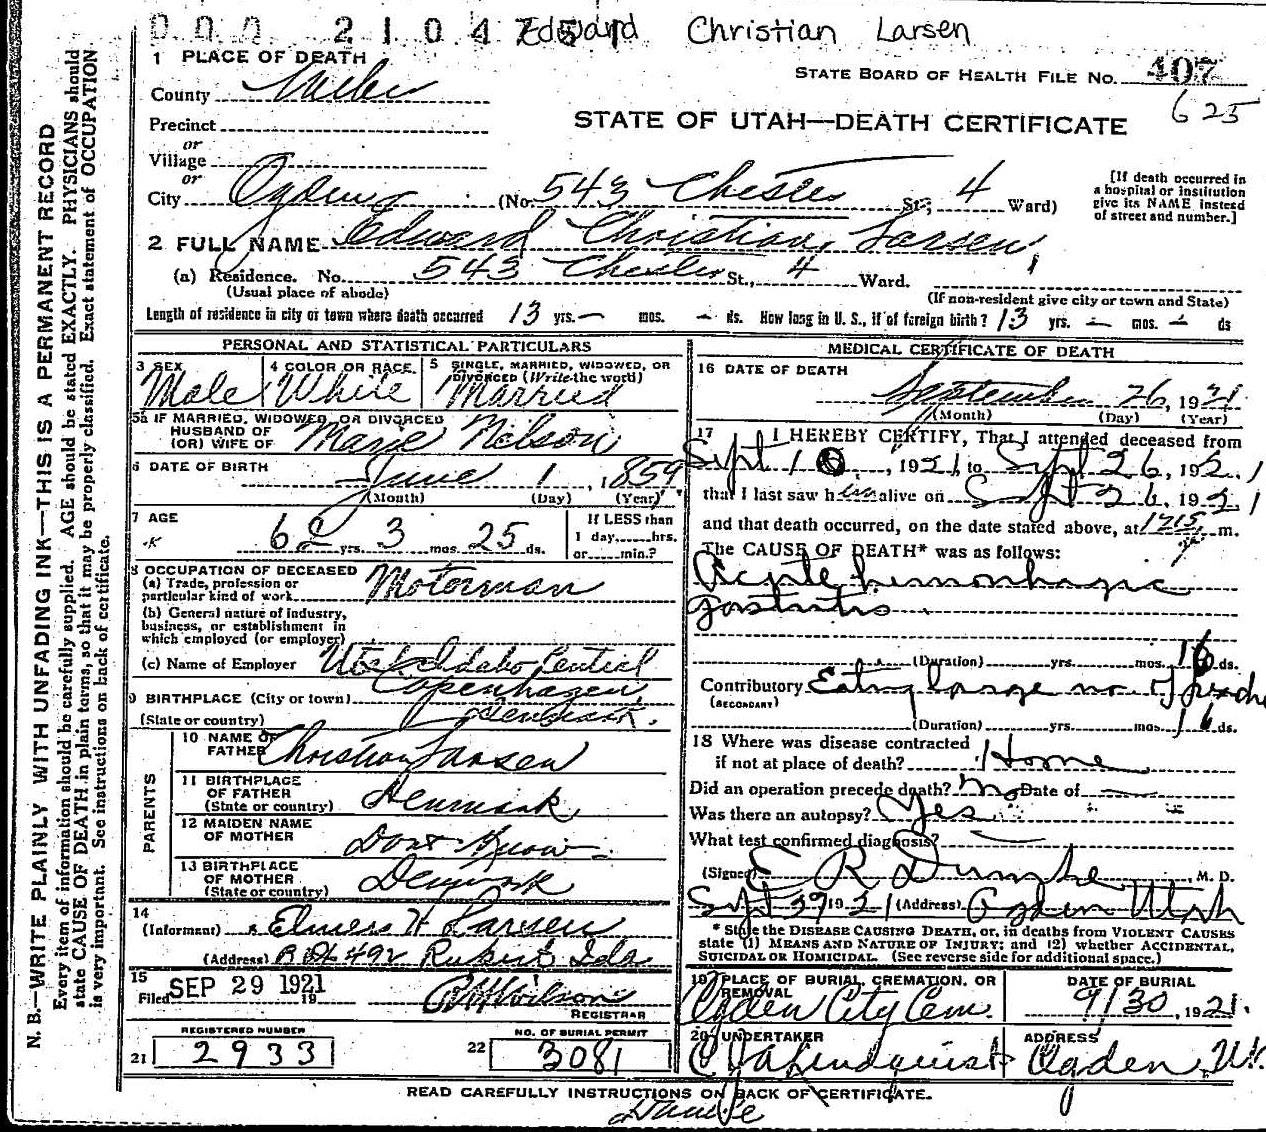 000 2104751 Edward Christian Larsen
1 PLACE OF DEATH
STATE BOARD OF HEALTH FILE NO. 407
625
County Weber
STATE OF UTAH—DEATH CERTIFICATE
Precinct
or
Village
or
City Ogden (No. 543 Chester St; 4 Ward)
[If death occurred in a hospital or institution give its NAME instead of street and number.]
2 FULL NAME Edward Christian Larsen
(a) Residence. No. 543 Chester St., 4 Ward.
(Usual place of abode)
(If non-resident give city or town and State)
Length of residence in city or town where death occurred 13 yrs. — mos. — ds. How long in U. S., if of foreign birth? 13 yrs. — mos. — ds
PERSONAL AND STATISTICAL PARTICULARS
3 SEX Male
4 COLOR OR RACE White
5 SINGLE, MARRIED, WIDOWED, OR DIVORCED (Write the word) Married
5a IF MARRIED, WIDOWED, OR DIVORCED
HUSBAND OF
(OR) WIFE OF Marie Nelson
6 DATE OF BIRTH June 1, 1859
(Month) (Day) (Year)
7 AGE
62 yrs. 3 mos. 25 ds.
If LESS than
1 day, hrs.
or min.?
8 OCCUPATION OF DECEASED
(a) Trade, profession or
particular kind of work Motorman
(b) General nature of industry,
business, or establishment in
which employed (or employer)
(c) Name of Employer Utah Idaho Central
9 BIRTHPLACE (City or town) Copenhagen
(State or country) Denmark.
PARENTS
10 NAME OF
FATHER Christian Larsen
11 BIRTHPLACE
OF FATHER
(State or country) Denmark
12 MAIDEN NAME
OF MOTHER Dont Know
13 BIRTHPLACE
OF MOTHER
(State or country) Denmark
14
(Informant) Elmer H Larsen
(Address) 492 Rupert Ida
15
Filed SEP 29 1921 19
Wilson
REGISTRAR
REGISTERED NUMBER
21 2933
NO. OF BURIAL PERMIT
22 3081
MEDICAL CERTIFICATE OF DEATH
16 DATE OF DEATH
September 26, 1921
(Month) (Day) (Year)
17 I HEREBY CERTIFY, That I attended deceased from
Sept 10, 1921, to Sept 26, 1921
that I last saw him alive on Sept 26, 1921
and that death occurred, on the date stated above, at 1215 m.
The CAUSE OF DEATH* was as follows:
Acute hemorrhagic
gastritis
(Duration) yrs. mos. 16 ds.
Contributory Eating large no of
(SECONDARY)
(Duration) yrs. mos. 16 ds.
18 Where was disease contracted
if not at place of death? Home
Did an operation precede death? no Date of —
Was there an autopsy? Yes
What test confirmed diagnosis?
(Signed) E R Dumke, M. D.
Sept 29 1921 (Address) Ogden Utah
* State the DISEASE CAUSING DEATH, or, in deaths from VIOLENT CAUSES
state (1) MEANS AND NATURE OF INJURY; and (2) whether ACCIDENTAL,
SUICIDAL OR HOMICIDAL. (See reverse side for additional space.)
19 PLACE OF BURIAL, CREMATION, OR REMOVAL
Ogden City Cem.
DATE OF BURIAL
9/30, 1921.
20 UNDERTAKER
Lindquist
ADDRESS
Ogden, Ut.
READ CAREFULLY INSTRUCTIONS ON BACK OF CERTIFICATE.
N. B.—WRITE PLAINLY WITH UNFADING INK—THIS IS A PERMANENT RECORD
Every item of information should be carefully supplied. AGE should be stated EXACTLY. PHYSICIANS should
state CAUSE OF DEATH in plain terms, so that it may be properly classified. Exact statement of OCCUPATION
is very important. See instructions on back of certificate.